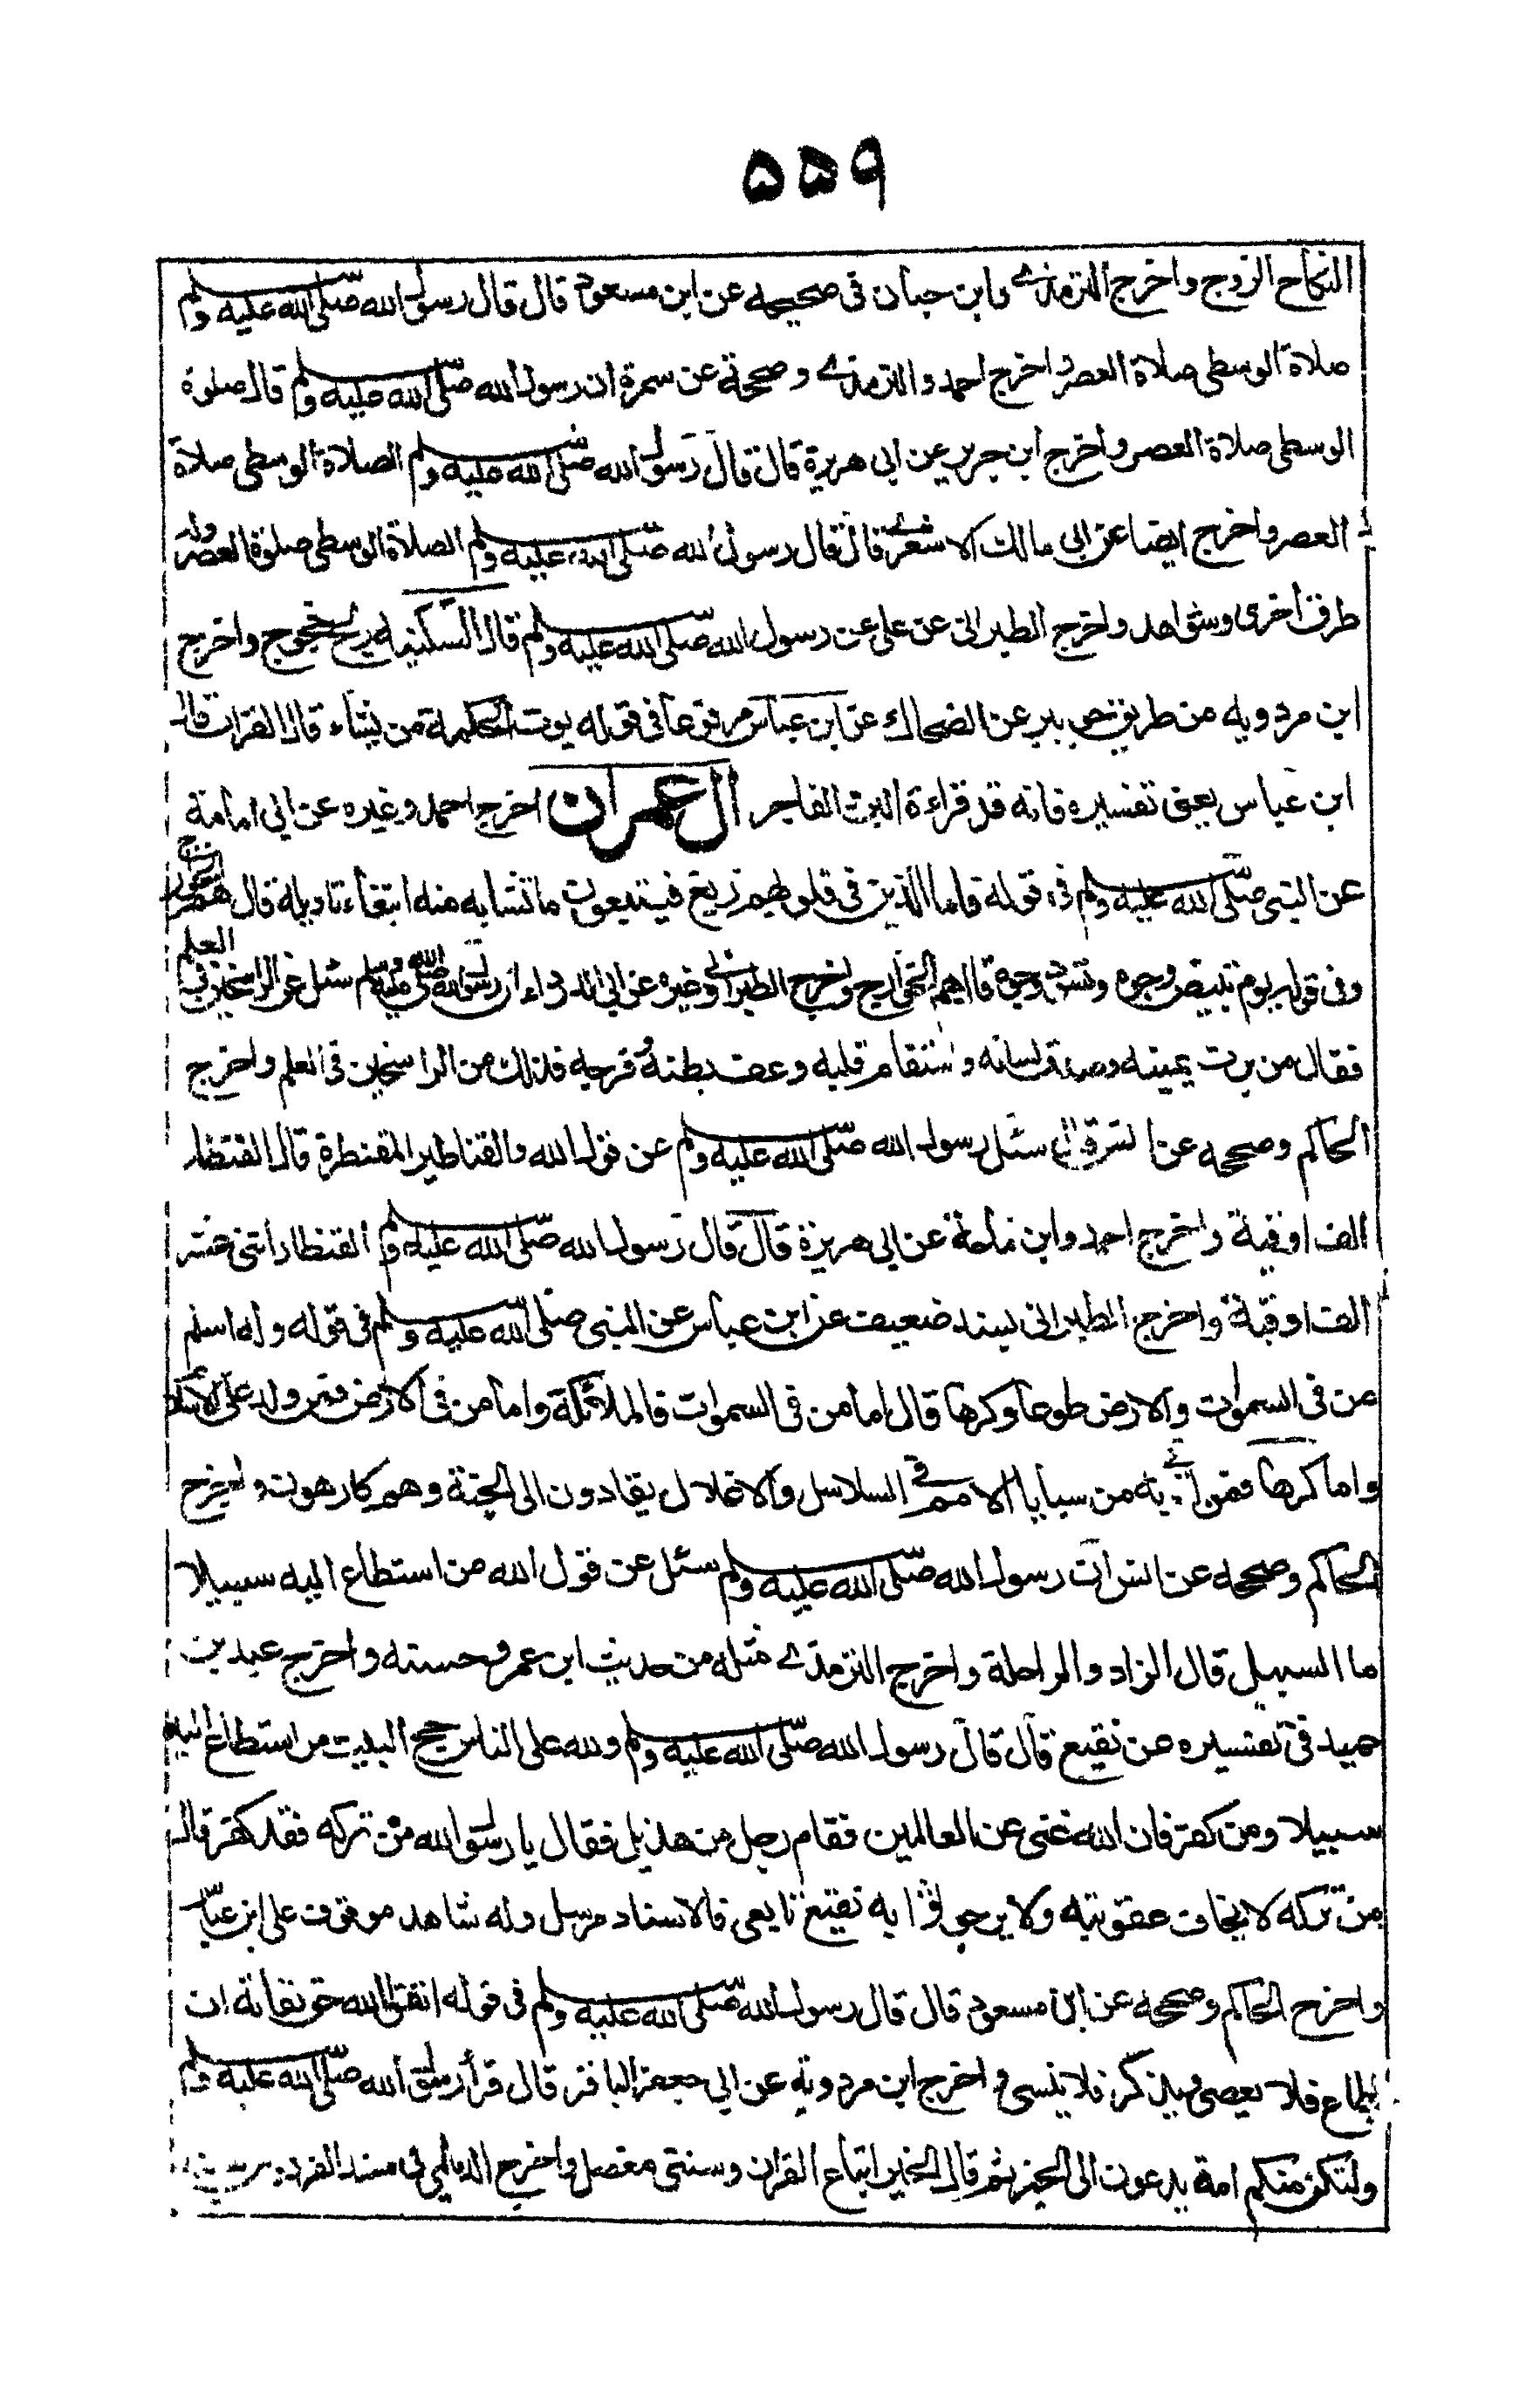 ۵۵۹
النكاح الزوج واخرج الترمذي وابن حبان في صحيحه عن ابن مسعود قال قال رسول الله صلى الله عليه ولم
صلاة الوسطى صلاة العصر واخرج احمد والترمذي وصححه عن سمرة ان رسول الله صلى الله عليه ولم قال صلوة
الوسطى صلاة العصر واخرج ابن جرير عن ابى هريرة قال قال رسول الله صلى الله عليه ولم الصلاة الوسطى صلاة
العصر واخرج ايضا عن ابى مالك الاشعرى قال قال رسول الله صلى الله عليه ولم الصلاة الوسطى صلوة العصر وله
طرق اخرى وشواهد واخرج الطبرانى عن على عن رسول الله صلى الله عليه ولم قال السكينه ريح خجوج واخرج
ابن مردويه من طريق جويبر عن الضحاك عن ابن عباس مرفوعا فى قوله يوت الحكمة من يشاء قال القران قال
ابن عباس يعنى تفسيره فانه قد قراءة البر والفاجر ال عمران اخرج احمد وغيره عن ابى امامة
عن النبى صلى الله عليه ولم فى قوله فاما الذين فى قلوبهم زيغ فيتبعون ما تشابه منه ابتغاء تاويله قال هم الخوارج
وفى قوله يوم تبيض وجوه وتسود وجوه قال هم الخوارج واخرج الطبرانى وغيره عن ابى الدرداء ان رسول الله صلى الله عليه وسلم سئل عن الراسخين فى العلم
فقال من برت يمينه وصدق لسانه واستقام قلبه وعف بطنه وفرجه فذلك من الراسخين فى العلم واخرج
الحاكم وصححه عن انس قال سئل رسول الله صلى الله عليه ولم عن قول الله والقناطير المقنطرة قال القنطار
الف اوقية واخرج احمد وابن ماجة عن ابى هريرة قال قال رسول الله صلى الله عليه ولم القنطار اثنى عشر
الف اوقية واخرج الطبرانى بسند ضعيف عن ابن عباس عن النبى صلى الله عليه وسلم فى قوله وله اسلم
من فى السموات والارض طوعا وكرها قال اما من فى السموات فالملائكة واما من فى الارض فمن ولد على الاسلام
واما كرها فمن اتى به من سبايا الامم فى السلاسل والاغلال يقادون الى الجنة وهم كارهون واخرج
الحاكم وصححه عن انس ان رسول الله صلى الله عليه ولم سئل عن قول الله من استطاع اليه سبيلا
ما السبيل قال الزاد والراحلة واخرج الترمذي مثله من حديث ابن عمر وحسنه واخرج عبد بن
حميد فى تفسيره عن نقيع قال قال رسول الله صلى الله عليه ولم ولله على الناس حج البيت من استطاع اليه
سبيلا ومن كفر فان الله غنى عن العالمين فقام رجل من هذيل فقال يا رسول الله من تركه فقد كفر قال
من تركه لا يخاف عقوبته ولا يرجو ثوابه نقيع تابعى فالاسناد مرسل وله شاهد موقوف على ابن عباس
واخرج الحاكم وصححه عن ابن مسعود قال قال رسول الله صلى الله عليه ولم فى قوله اتقوا الله حق تقاته ان
يطاع فلا يعصى ويذكر فلا ينسى واخرج ابن مردويه عن ابى جعفر الباقر قال قرأ رسول الله صلى الله عليه ولم
ولتكن منكم امة يدعون الى الخير ثم قال الخير اتباع القران وسنتى معضل واخرج الديلمى فى مسند الفردوس